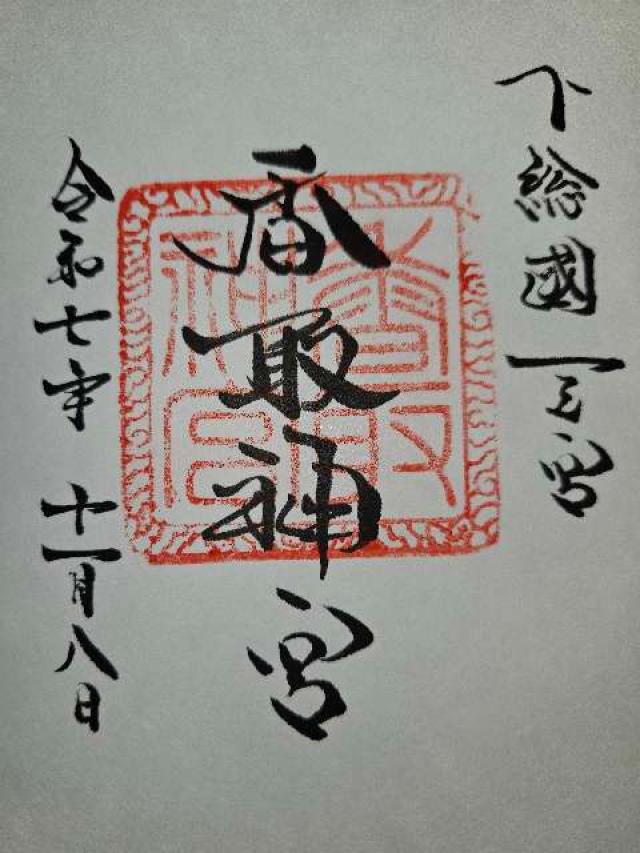 下総國一之宮
香取神宮
令和七年 十一月八日
香取神宮